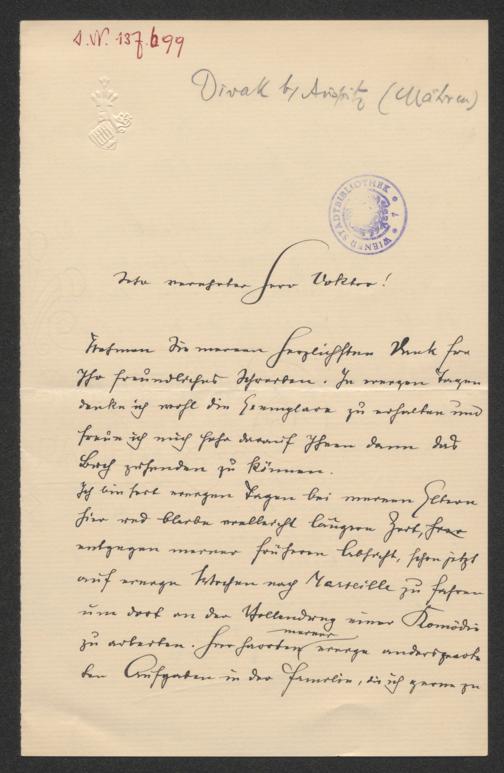 J.N. 137.699
Divak b/ Auspitz (Mähren)
WIENER STADTBIBLIOTHEK
Sehr verehrter Herr Doktor!
Nehmen Sie meinen herzlichsten Dank für
Ihr freundliches Schreiben. In wenigen Tagen
denke ich wohl die Exemplare zu erhalten und
freue ich mich sehr darauf Ihnen dann das
Buch zusenden zu können.
Ich bin seit wenigen Tagen bei meinen Eltern
hier und bleibe vielleicht längere Zeit,
entgegen meiner früheren Absicht, schon jetzt
auf einige Wochen nach Marseille zu fahren
um dort an der Vollendung einer Komödie
zu arbeiten. Hier meiner einige andersgearte
ten Aufgaben in der Familie, die ich gerne zu